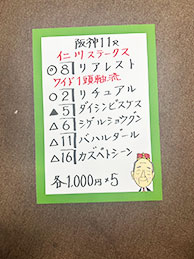 阪神11R
仁川ステークス
◎8リアレスト
ワイド1頭軸流
○2リチュアル
▲5ダイシンビスケス
△6シゲルショウグン
△11バハルダール
△16カズペトシーン
各1.000円×5